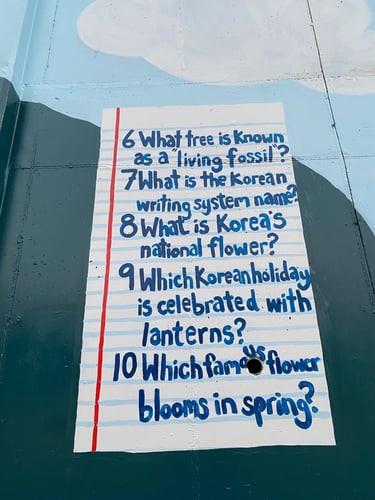 6 What tree is Known
as a "living fossil"?
7 What is the Korean
writing system name?
8 What is Korea's
national flower?
9 Which Korean holiday
is celebrated with
lanterns?
10 Which famous flower
blooms in spring?